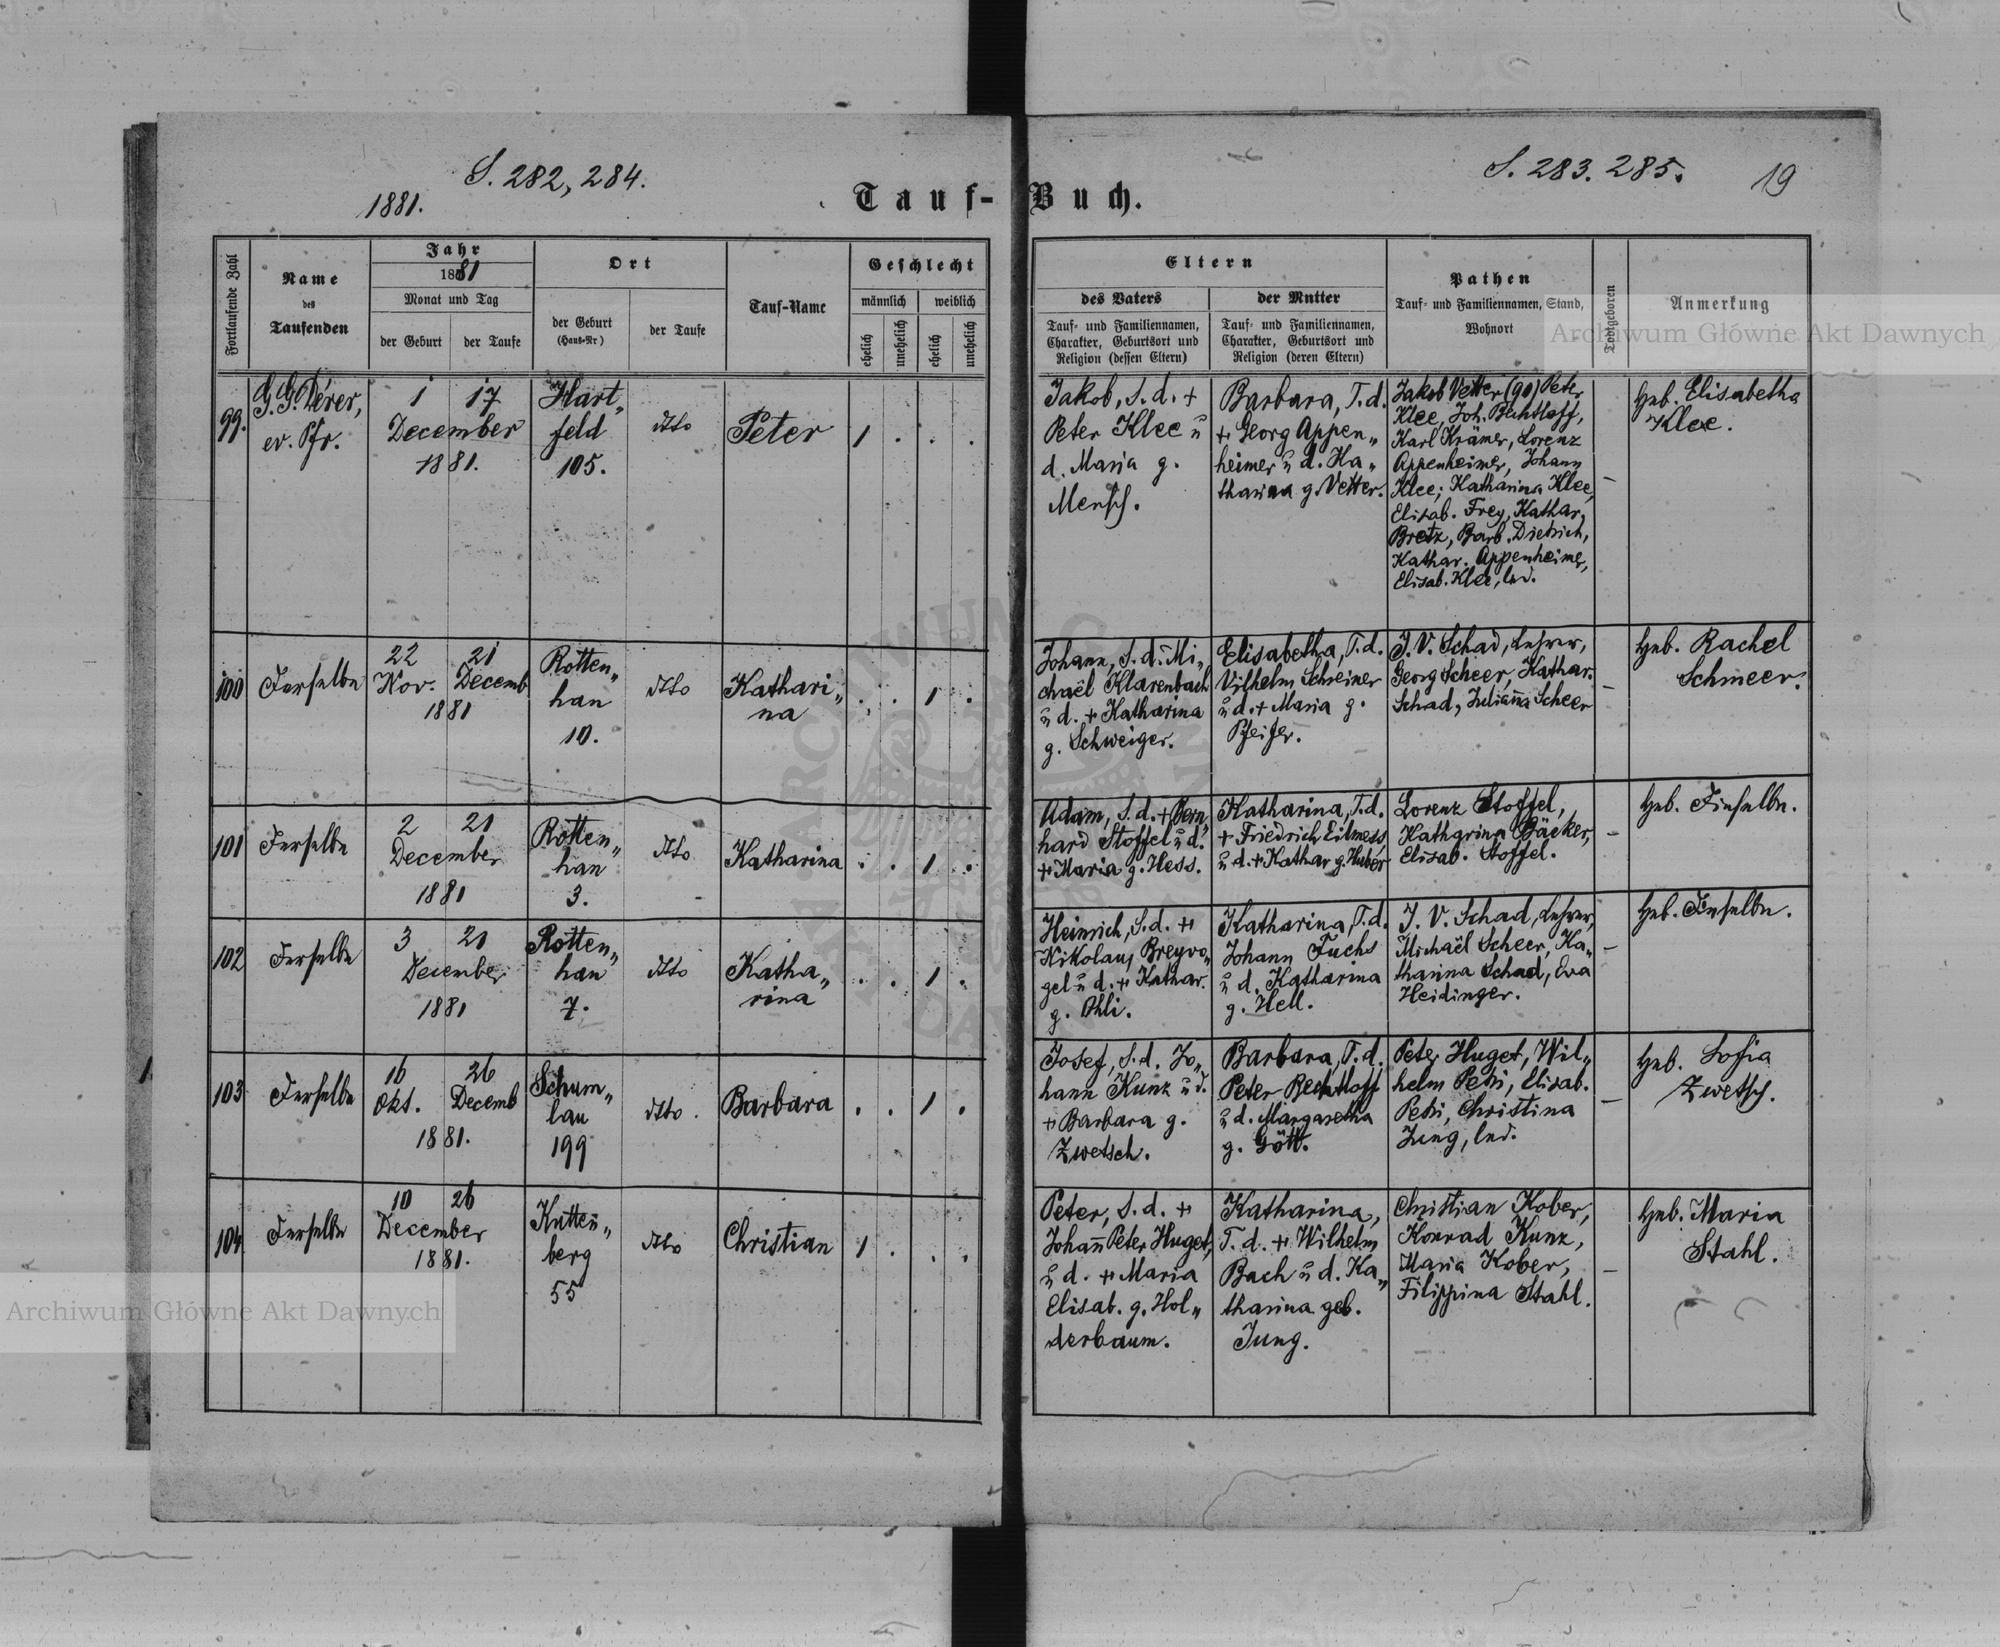 S. 282, 284.
1881.
Tauf-Buch.
S. 283. 285.
19
Fortlaufende Zahl
Name
des
Taufenden
Jahr
1881
Monat und Tag
der Geburt
der Taufe
Ort
der Geburt
(Haus-Nr)
der Taufe
Tauf-Name
Geschlecht
männlich
weiblich
ehelich
unehelich
ehelich
unehelich
Eltern
des Vaters
Tauf- und Familiennamen,
Charakter, Geburtsort und
Religion (dessen Eltern)
der Mutter
Tauf- und Familiennamen,
Charakter, Geburtsort und
Religion (deren Eltern)
Pathen
Tauf- und Familiennamen, Stand,
Wohnort
Todtgeboren
Anmerkung
99.
G. G. Dérer,
ev. Pfr.
1 17
December
1881.
Hart„
feld
105.
dtto
Peter
1 . . .
Jakob, S. d. +
Peter Klee u
d. Maria g.
Mensch.
Barbara, T. d.
+ Georg Appen„
heimer u d. Ka„
tharina g. Vetter.
Jakob Vetter (90) Peter
Klee, Joh. Bechtloff,
Karl Krämer, Lorenz
Appenheimer, Johann
Klee; Katharina Klee,
Elisab. Frey, Kathar.
Bretz, Barb. Dietrich,
Kathar. Appenheimer,
Elisab. Klee, led.
–
Heb. Elisabetha
Klee.
100
Derselbe
22 21
Nov. Decemb
1881
Rotten„
han
10.
dtto
Kathari„
na
. . 1 .
Johann, S. d. Mi„
chaël Klarenbach
u d. + Katharina
g. Schweiger.
Elisabetha, T. d.
Wilhelm Schreiner
u d. + Maria g.
Pfeifer.
J. V. Schad, Lehrer,
Georg Scheer, Kathar.
Schad, Julianna Scheer
–
Heb. Rachel
Schmeer.
101
Derselbe
2 21
December
1881
Rotten„
han
3.
dtto
Katharina
. . 1 .
Adam, S. d. + Bern„
hard Stoffel u d.
+ Maria g. Hess.
Katharina, T. d.
+ Friedrich Eilmess
u d. + Kathar g. Huber
Lorenz Stoffel,
Katharina Bäcker,
Elisab. Stoffel.
–
Heb. Dieselbe.
102
Derselbe
3 21
December
1881
Rotten„
han
7.
dtto
Katha„
rina
. . 1 .
Heinrich, S. d. +
Nikolaus Breyvo„
gel u d. + Kathar.
g. Ohli.
Katharina, T. d.
Johann Fuchs
u d. Katharina
g. Hell.
J. V. Schad, Lehrer,
Michaël Scheer, Ka„
tharina Schad, Eva
Heidinger.
–
Heb. Dieselbe.
103
Derselbe
16 26
Okt. Decemb
1881.
Schum„
lau
199
dtto.
Barbara
. . 1 .
Josef, S. d. Jo„
hann Kunz u d.
+ Barbara g.
Zwetsch.
Barbara, T. d.
Peter Bechtloff
u d. Margaretha
g. Gött.
Peter Huget, Wil„
helm Petri, Elisab.
Petri, Christina
Jung, led.
–
Heb. Sofia
Zwetsch.
104
Derselbe
10 26
December
1881.
Kutten„
berg
55
dtto
Christian
1 . . .
Peter, S. d. +
Johann Peter Huget,
u d. + Maria
Elisab. g. Hol„
derbaum.
Katharina,
T. d. + Wilhelm
Bach u d. Ka„
tharina geb.
Jung.
Christian Kober,
Konrad Kunz,
Maria Kober,
Filippina Stahl.
–
Heb. Maria
Stahl.
Archiwum Główne Akt Dawnych
Archiwum Główne Akt Dawnych